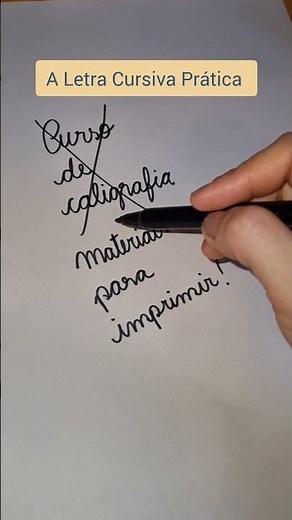 A Letra Cursiva Prática
Curso
de
caligrafia
material
para
imprimir!